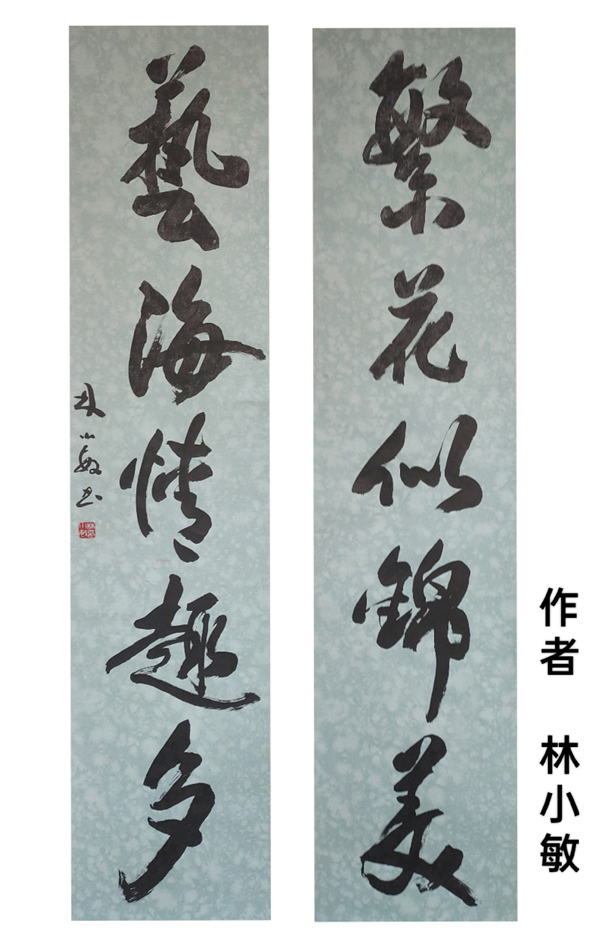 繁花似錦美
藝海情趣多
林小敏书
作者 林小敏